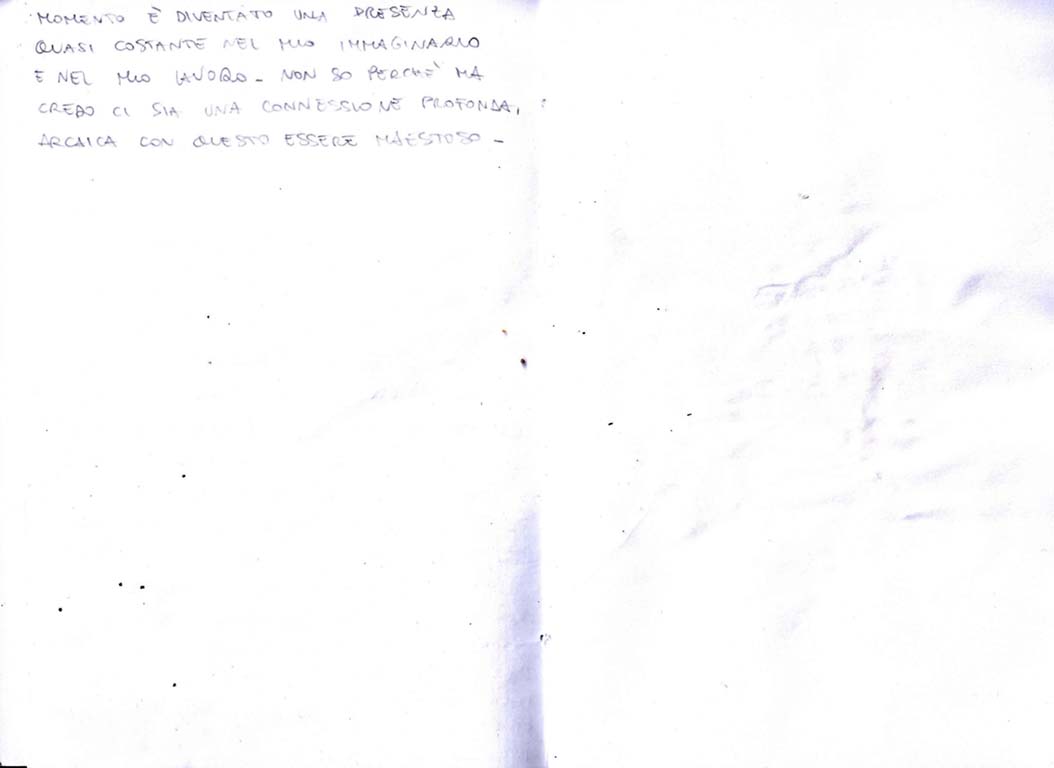 MOMENTO È DIVENTATO UNA PRESENZA
QUASI COSTANTE NEL MIO IMMAGINARIO
E NEL MIO LAVORO - NON SO PERCHÈ MA
CREDO CI SIA UNA CONNESSIONE PROFONDA,
ARCAICA CON QUESTO ESSERE MAESTOSO -